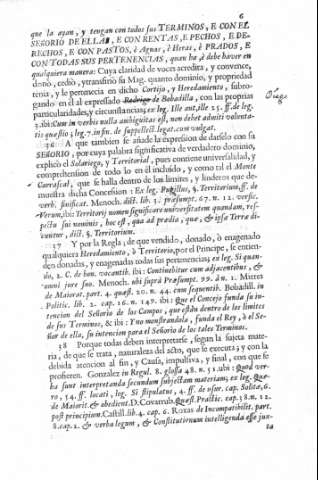 6
que la ayan, y tengan con todos sus TERMINOS, E CON EL
SEñORIO DE ELLAS, E CON RENTAS, E PECHOS, E DE-
RECHOS, E CON PASTOS, è Aguas, è Heras, è PRADOS, E
CON TODAS SUS PERTENENCIAS, quan ha à debe haver en
qualquiera manera: Cuya claridad de voces acredita, y convence,
donò, cediò, y transfiriò su Mag. quanto dominio, y propriedad
tenia, y le pertenecia en dicho Cortijo, y Heredamiento, subro-
gando en èl al expressado Rodrigo de Bobadilla, con las proprias
particularidades, y circunstancias; ex leg. Ille aut, ille 25. ff. de leg.
3. ibi: Cum in verbis nulla ambiguitas est, non debet admitti volunta-
tis quæstio, leg. 7. in fin. de suppellect. legat. cum vulgat.
36 A que tambien se añade la expression de darselo con su
SEñORIO, por cuya palabra significativa de verdadero dominio,
explicò el Solariego, y Territorial, pues contiene universalidad, y
comprehension de todo lo en èl incluido, y como tal el Monte
Carrascal, que se halla dentro de los limites, y linderos que de-
muestra dicha Concession: Ex leg. Pupillus, §. Territorium, ff. de
verb. significat. Menoch. dict. lib. 3. præsumpt. 67. n. 12. versic.
Verum, ibi: Territorij nomen significare universitatem quandam, res-
pectu sui nominis, hoc est, qua ad prædia, quæ, & ipsæ Terræ di-
cuntur, dict. §. Territorium.
37 Y por la Regla, de que vendido, donado, ò enagenado
qualquiera Heredamiento, ò Territorio, por el Principe, se entien-
den donadas, y enagenadas todas sus pertenencias; ex leg. Si quan-
do, 2. C. de bon. vacantib. ibi: Continebitur cum adjacentibus, &
omni jure suo. Menoch. ubi suprà Præsumpt. 99. àn. 1. Mieres
de Maiorat. part. 4. quæst. 20. n. 44. cum sequentib. Bobadill. in
Politic. lib. 2. cap. 16. n. 149. ibi: Que el Concejo funda su in-
tencion del Señorio de los Campos, que estàn dentro de los limites
de sus Terminos, & ibi: Y no muestrandola, funda el Rey, ò el Se-
ñor de ella, su intencion para el Señorio de los tales Terminos.
38 Porque todas deben interpretarse, segun la sujeta mate-
ria, de que se trata, naturaleza del acto, que se executa; y con la
debida atencion al fin, y Causa, impulsiva, y final, con que se
profieren. Gonzalez in Regul. 8. glossa 48. n. 51. ubi: Quod ver-
ba sunt interpretanda secundum subjectam materiam; ex leg. Quæ-
ro, 54. ff. locati, leg. Si stipulatus, 4. ff. de usur. cap. Solitæ, 6.
de Maiorit. & obedient. D. Covarrub. Quæst. Practic. cap. 38. n. 12.
post principium. Castill. lib. 4. cap. 6. Roxas de Incompatibilit. part.
8. cap. 2. & verba legum, & Constitutionum intelligenda esse jux-
ta